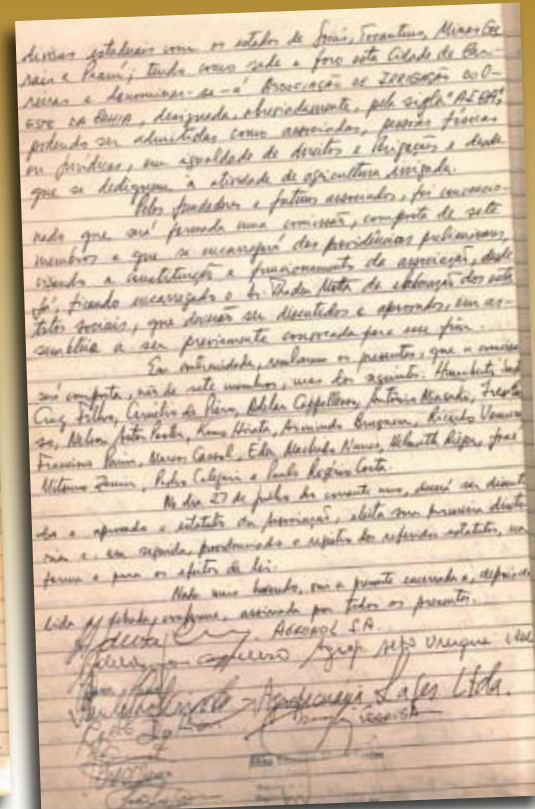 divisas estaduais com os estados de Goiás, Tocantins, Minas Ge-
rais e Piauí; tendo como sede e foro esta Cidade de Bar-
reiras e denominar-se-á ASSOCIAÇÃO DE IRRIGAÇÃO DO O-
ESTE DA BAHIA, designada, abreviadamente, pela sigla "AIBA",
podendo ser admitidas como associadas, pessoas físicas
ou jurídicas, em igualdade de direitos e obrigações e desde
que se dediquem à atividade de agricultura irrigada.
Pelos fundadores e futuros associados, foi convencio-
nado que será formada uma comissão, composta de sete
membros e que se encarregará das providências preliminares,
visando a constituição e funcionamento da associação, desde
já, ficando encarregado o Sr. Mota da elaboração dos esta-
tutos sociais, que deverão ser discutidos e aprovados, em as-
sembléia a ser previamente convocada para esse fim.
Em continuidade, resolveram os presentes, que a comissão
será composta, não de sete membros, mas dos seguintes: Humberto
Cruz Filho, de Piero, Adelar Cappellesso, Antônio
Nelson, Kumo Hirata, Armindo, Ricardo
Francisco, Marcos, Eder Machado Nunes, Helmuth, José
Mitsuro, Pedro Calegari e Paulo Rogério Costa.
No dia 27 de julho do corrente ano, deverá ser discuti-
do e aprovado o estatuto da associação, eleita sua primeira direto-
ria e, em seguida, providenciado o registro dos referidos estatutos, na
forma e para os efeitos de lei.
Nada mais havendo, vai a presente encerrada e, depois de
lida e achada conforme, assinada por todos os presentes.
AGRONOL S.A.
Cappellesso Agrop. Sete
Agropecuária Lages Ltda.